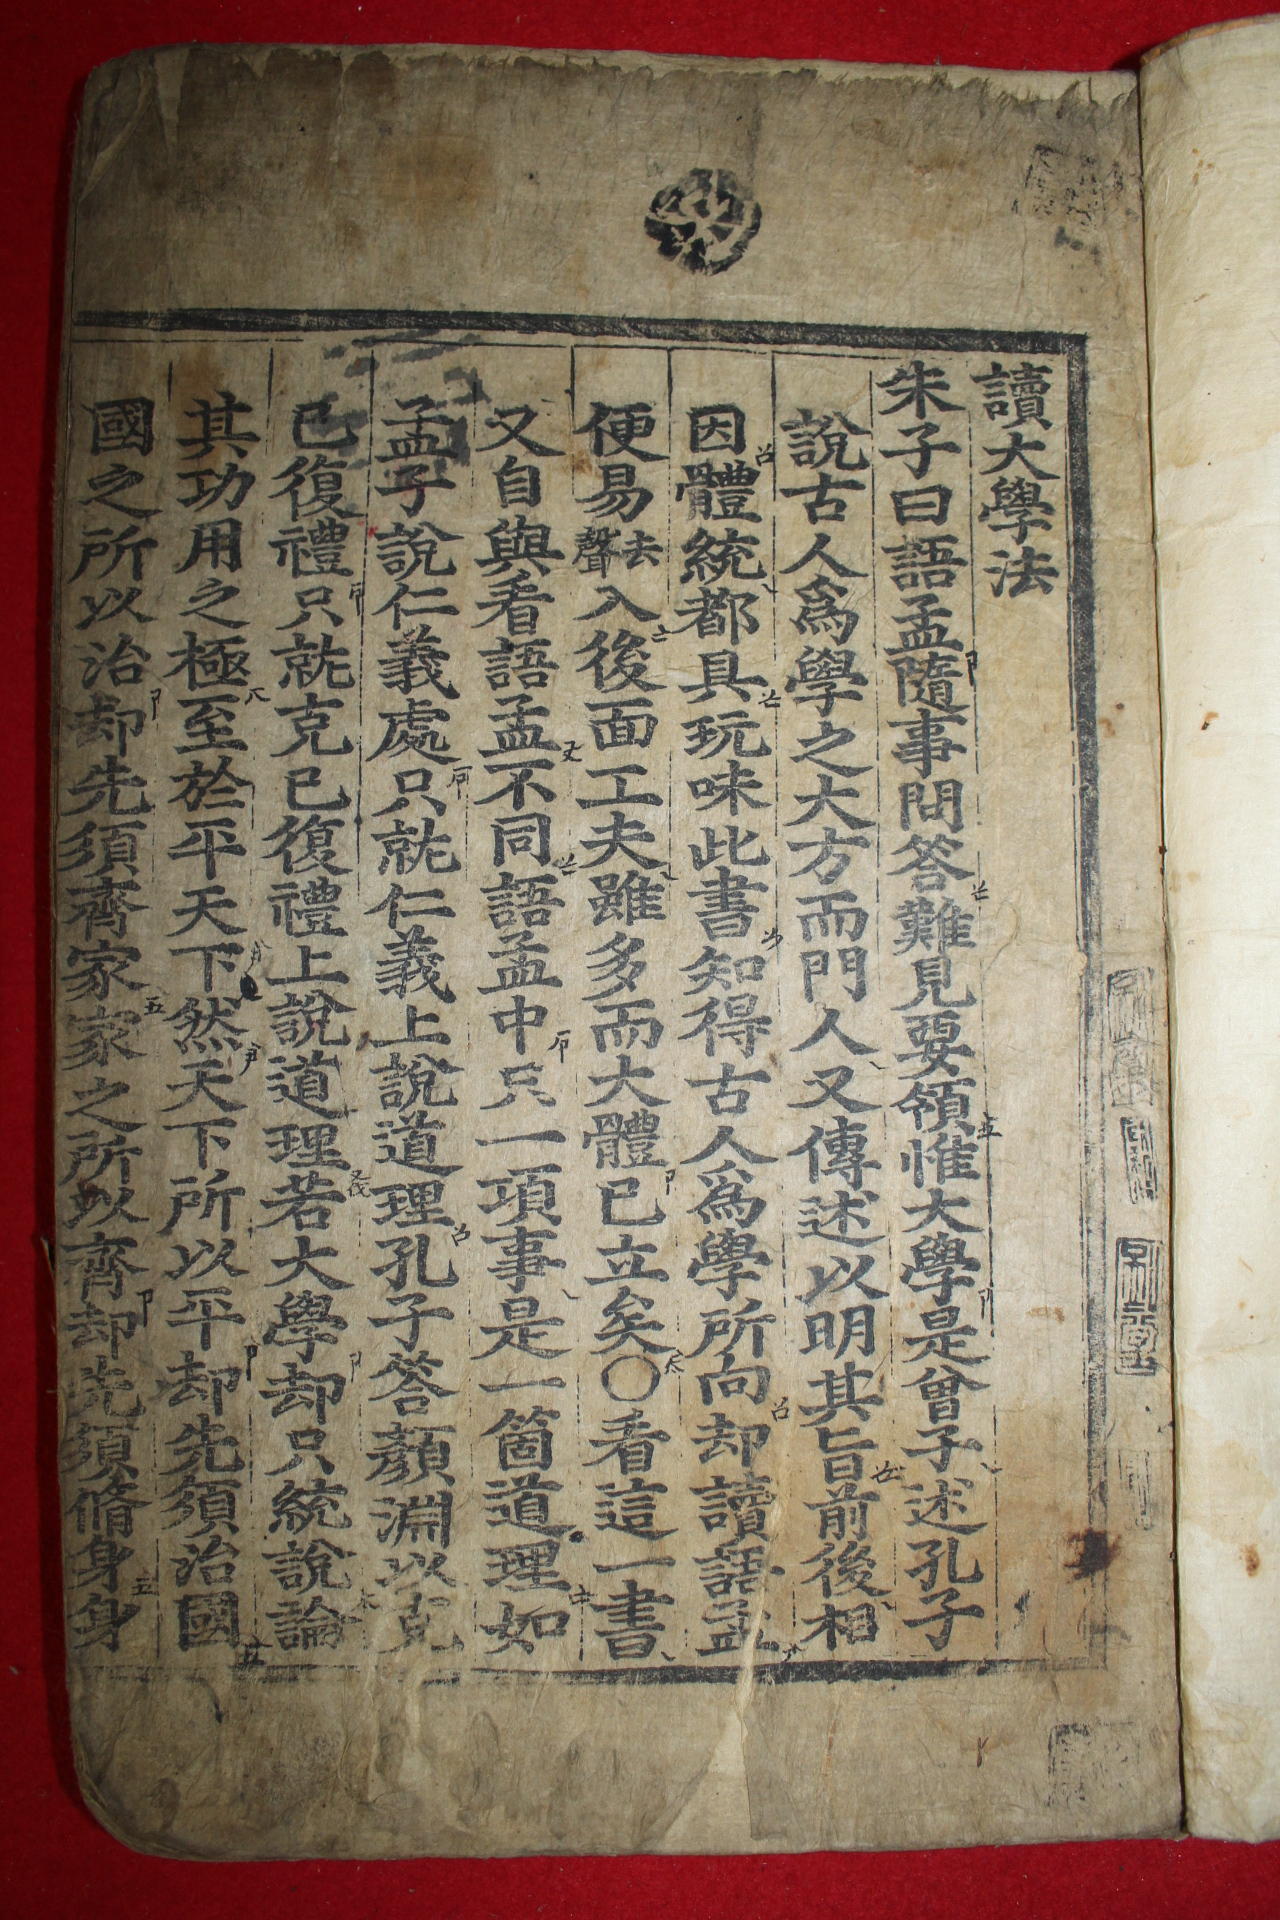 讀大學法
朱子曰語孟隨事問答難見要領惟大學是曾子述孔子
說古人爲學之大方而門人又傳述以明其旨前後相
因體統都具玩味此書知得古人爲學所向却讀語孟
便易去聲入後面工夫雖多而大體已立矣○看這一書
又自與看語孟不同語孟中只一項事是一箇道理如
孟子說仁義處只就仁義上說道理孔子答顔淵以克
己復禮只就克己復禮上說道理若大學却只統說論
其功用之極至於平天下然天下所以平却先須治國
國之所以治却先須齊家家之所以齊却先須脩身身